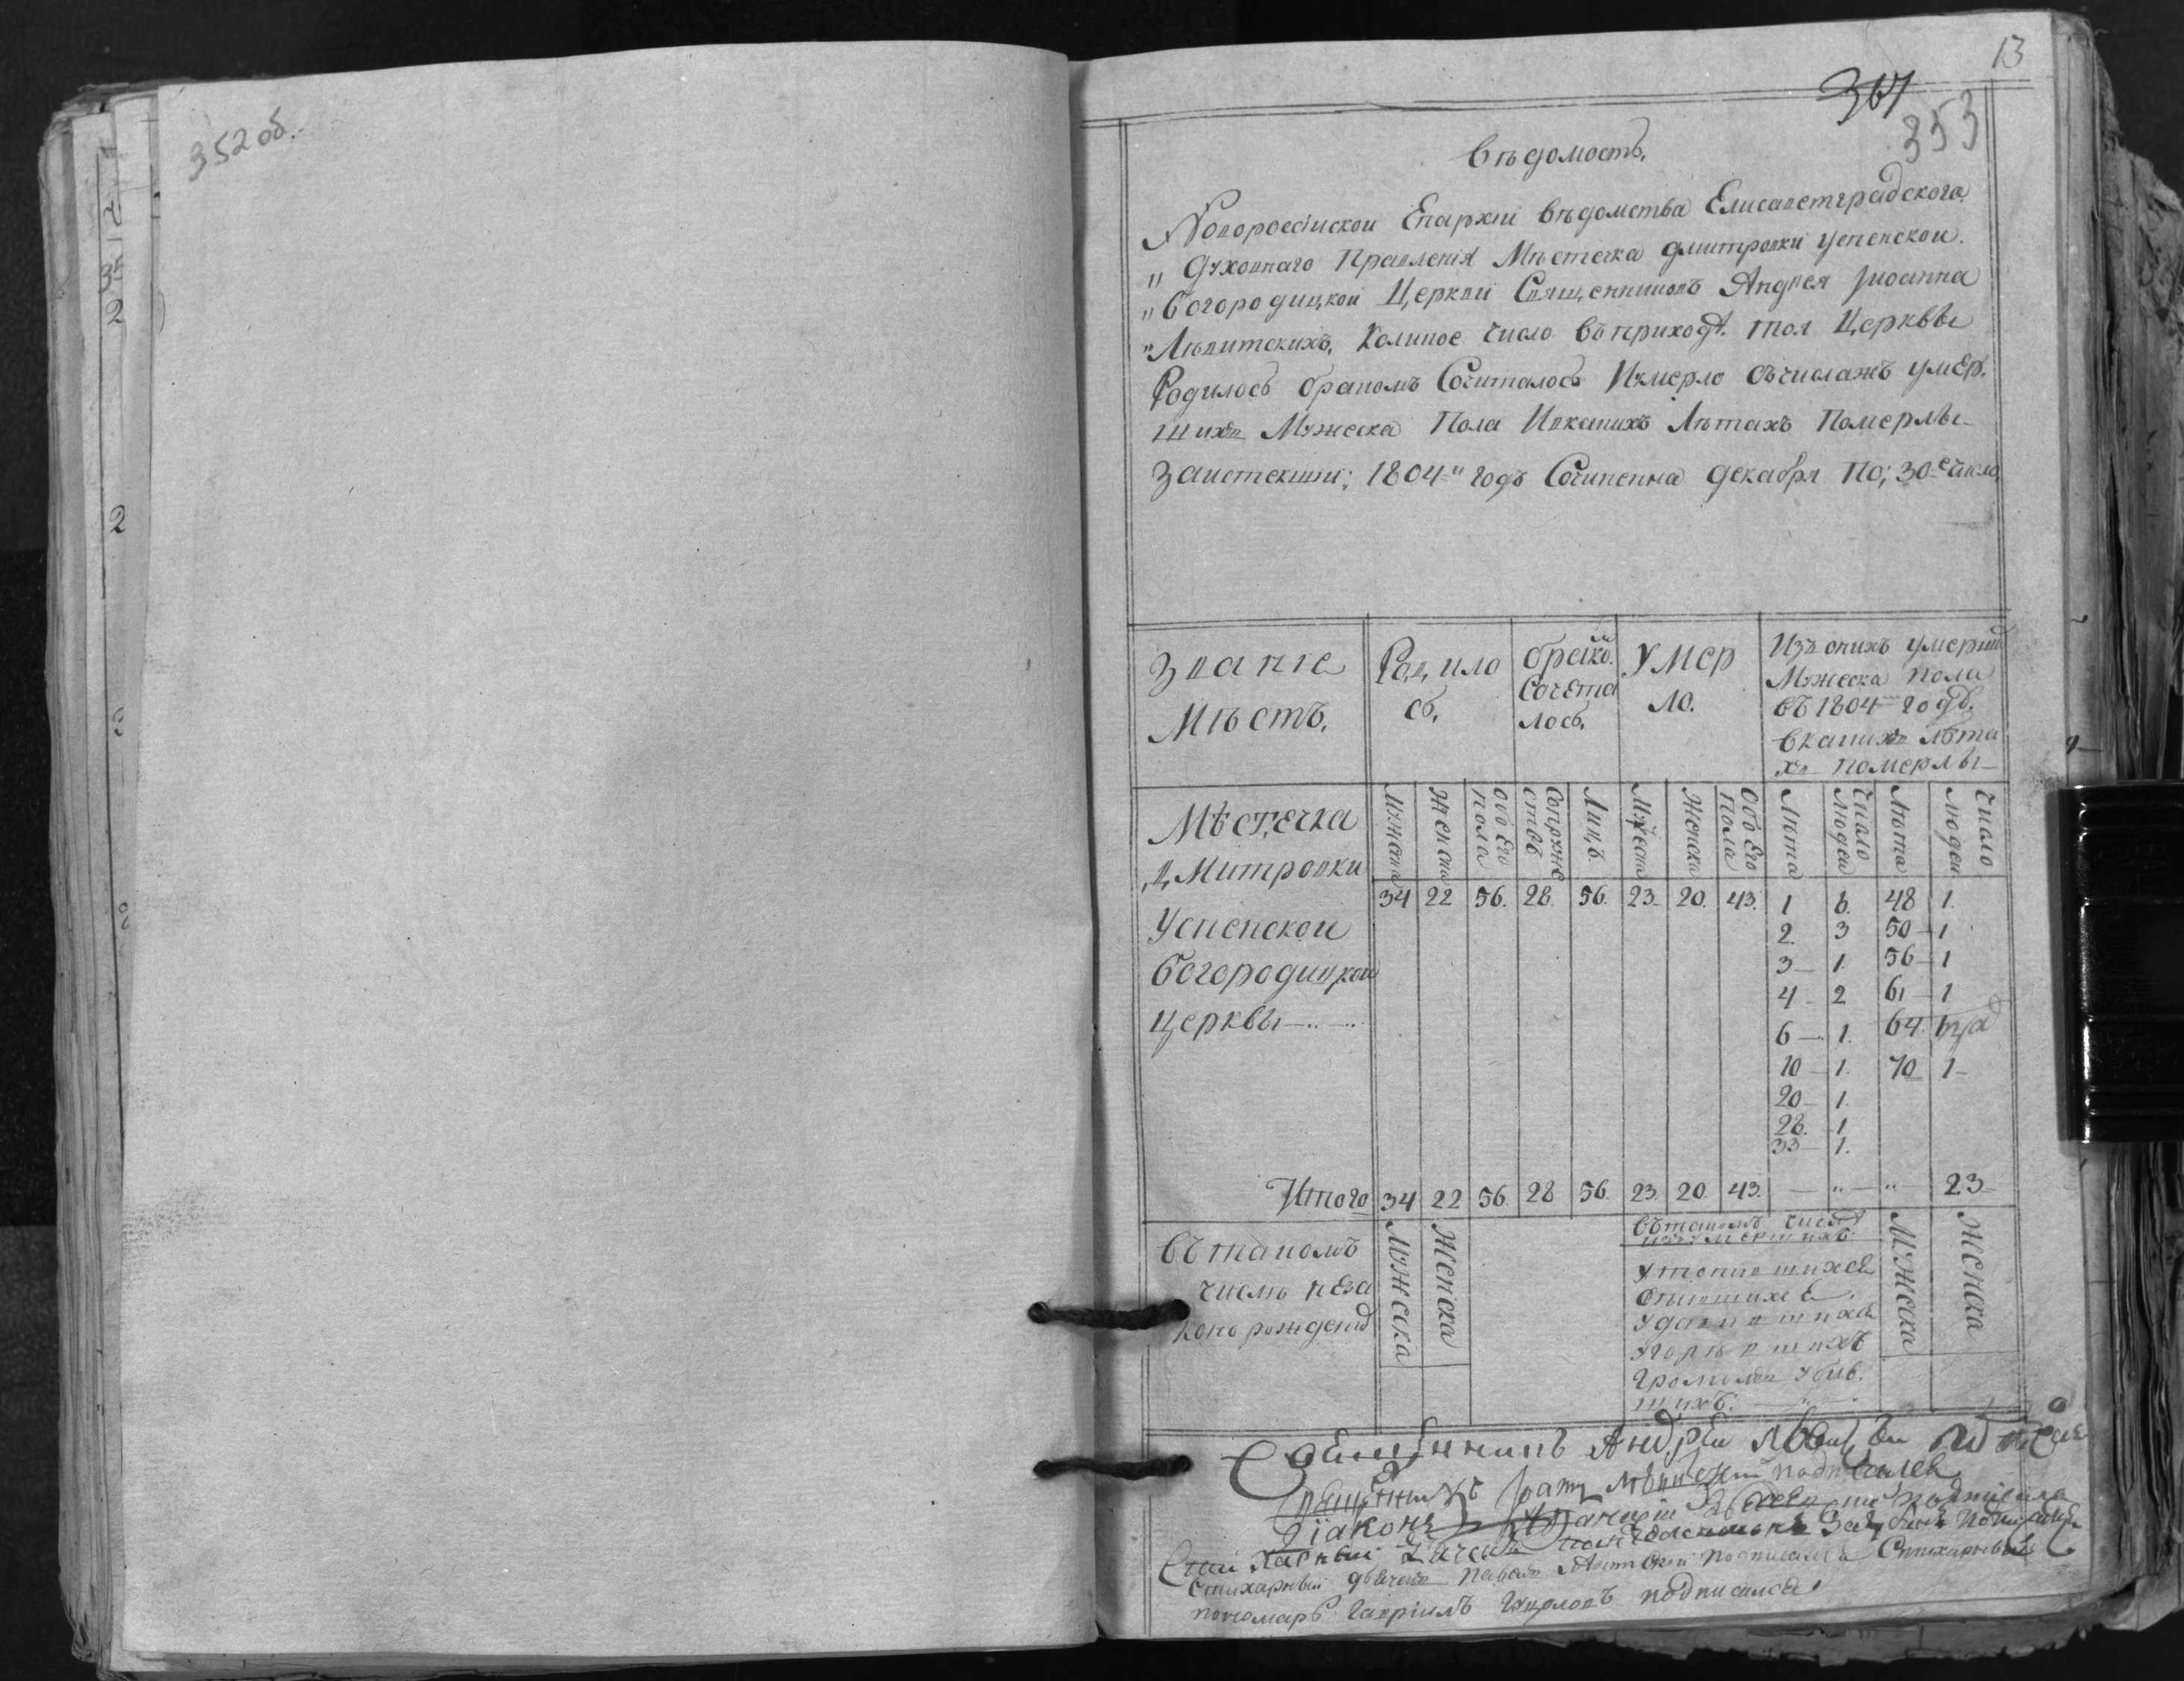 352 об.
13
367
353
Вѣдомость.
Новороссійской Епархіи вѣдомства Елисаветградского,
„ Духовнаго Правленія Мѣстечка Дмитровки Успенской.
„ Богородицкой Церкви Священниковъ Андрея Иоанна
„ Лѣвитскихъ, Коликое число въ приходѣ тоя Церквы
Родилось бракомъ Сочиталось Иумерло Съчислажъ умер.
шихъ Мужеска Пола Ивкакихъ Лѣтахъ Померлы
За истекший; 1804-й годъ Сочиненна декабря по; 30-е число,
Званіе
Мѣстъ.
Родило
сь.
браком
Сочета
лось.
Умер
ло.
Изъ оныхъ умершихъ
Мужеска пола
въ 1804 годѣ.
Вкакихъ лѣта
хъ померлы
Мужеска
Женска
Обоего
пола
Супруже
ствъ
Лицъ.
Мужеска
Женска
Обоего
Пола
Лѣта
Число
людей
Лѣта
Число
людей
Мѣстечка
Дмитровки
Успенской
Богородицкой
Церквы
34 22 56. 28. 56. 23. 20. 43. 1 8. 48 1.
2. 3 50 1
3 1. 56 1
4 2 61 1
6 1. 64.
10 1. 70 1
20 1.
28. 1
33 1.
Итого 34 22 56 28 56. 23. 20. 43. 23
Въ такомъ
числѣ неза
коно рожденныхъ
Мужеска
Женска
Въ такомъ числѣ
изъ умершихъ
Утопившихся
Опившихся.
Удавившихся
Угорѣвшихъ
Громомъ Убив.
шихъ.
Мужеска
Женска
Священникъ Андрей
Священникъ Иоанн Лѣвицкий подписался
Діаконъ
Стихарный дьячокъ
Стихарный дьячокъ Павелъ подписался Стихарный
пономарь Гавріилъ подписался